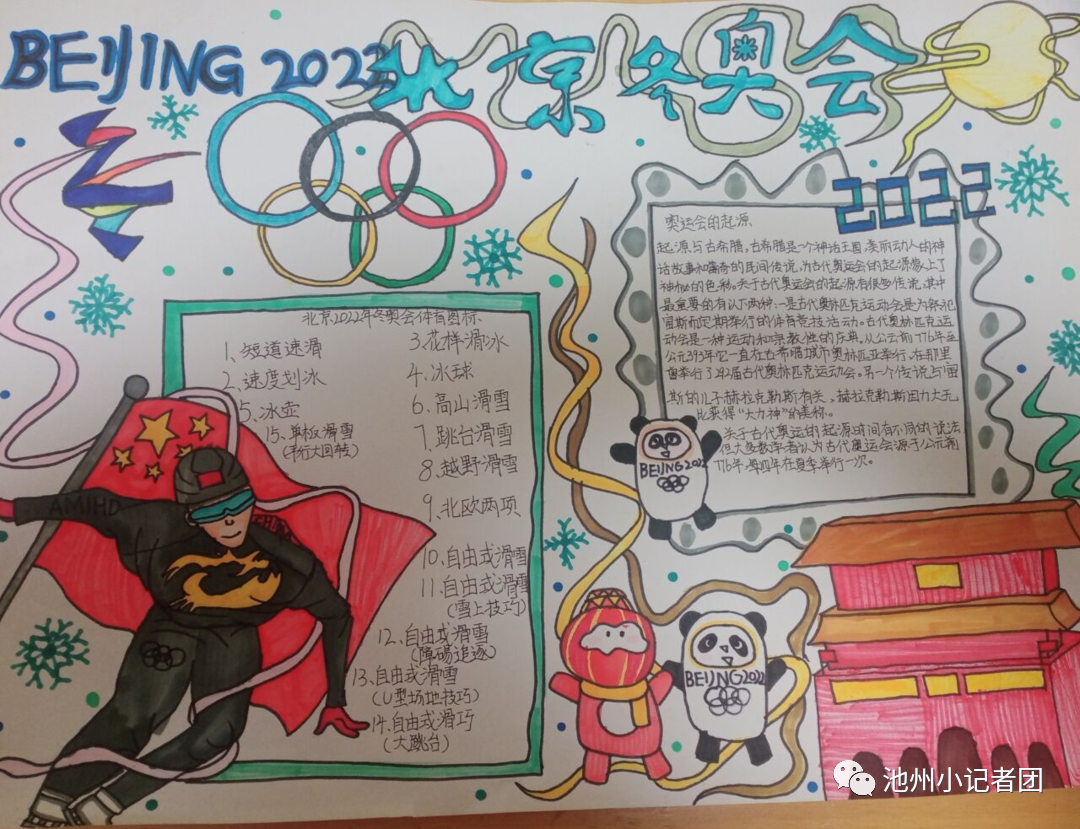 BEIJING 2022
北京冬奥会
2022
北京2022年冬奥会体育图标
1、短道速滑
2、速度划冰
3、花样滑冰
4、冰球
5、冰壶
6、高山滑雪
7、跳台滑雪
8、越野滑雪
9、北欧两项
10、自由式滑雪
11、自由式滑雪
(雪上技巧)
12、自由式滑雪
(障碍追逐)
13、自由式滑雪
(U型场地技巧)
14、自由式滑巧
(大跳台)
15、单板滑雪
(平行大回转)
奥运会的起源
起源与古希腊,古希腊是一个神话王国,美丽动人的神
话故事和离奇的民间传说,为古代奥运会的起源蒙上了
神秘的色彩。关于古代奥运会的起源有很多传说,其中
最重要的有以下两种:一是古代奥林匹克运动会是为祭祀
宙斯而定期举行的体育竞技活动。古代奥林匹克运
动会是一种运动和宗教性的庆典。从公元前776年至
公元393年它一直在古希腊城市奥林匹亚举行,在那里
曾举行了292届古代奥林匹克运动会。另一个传说与宙
斯的儿子赫拉克勒斯有关,赫拉克勒斯因力大无
比获得“大力神”的美称。
关于古代奥运的起源时间有不同的说法
但大多数学者认为古代奥运会源于公元前
776年,每四年在夏季举行一次。
BEIJING 2022
BEIJING 2022
AMIHD
CHI
池州小记者团